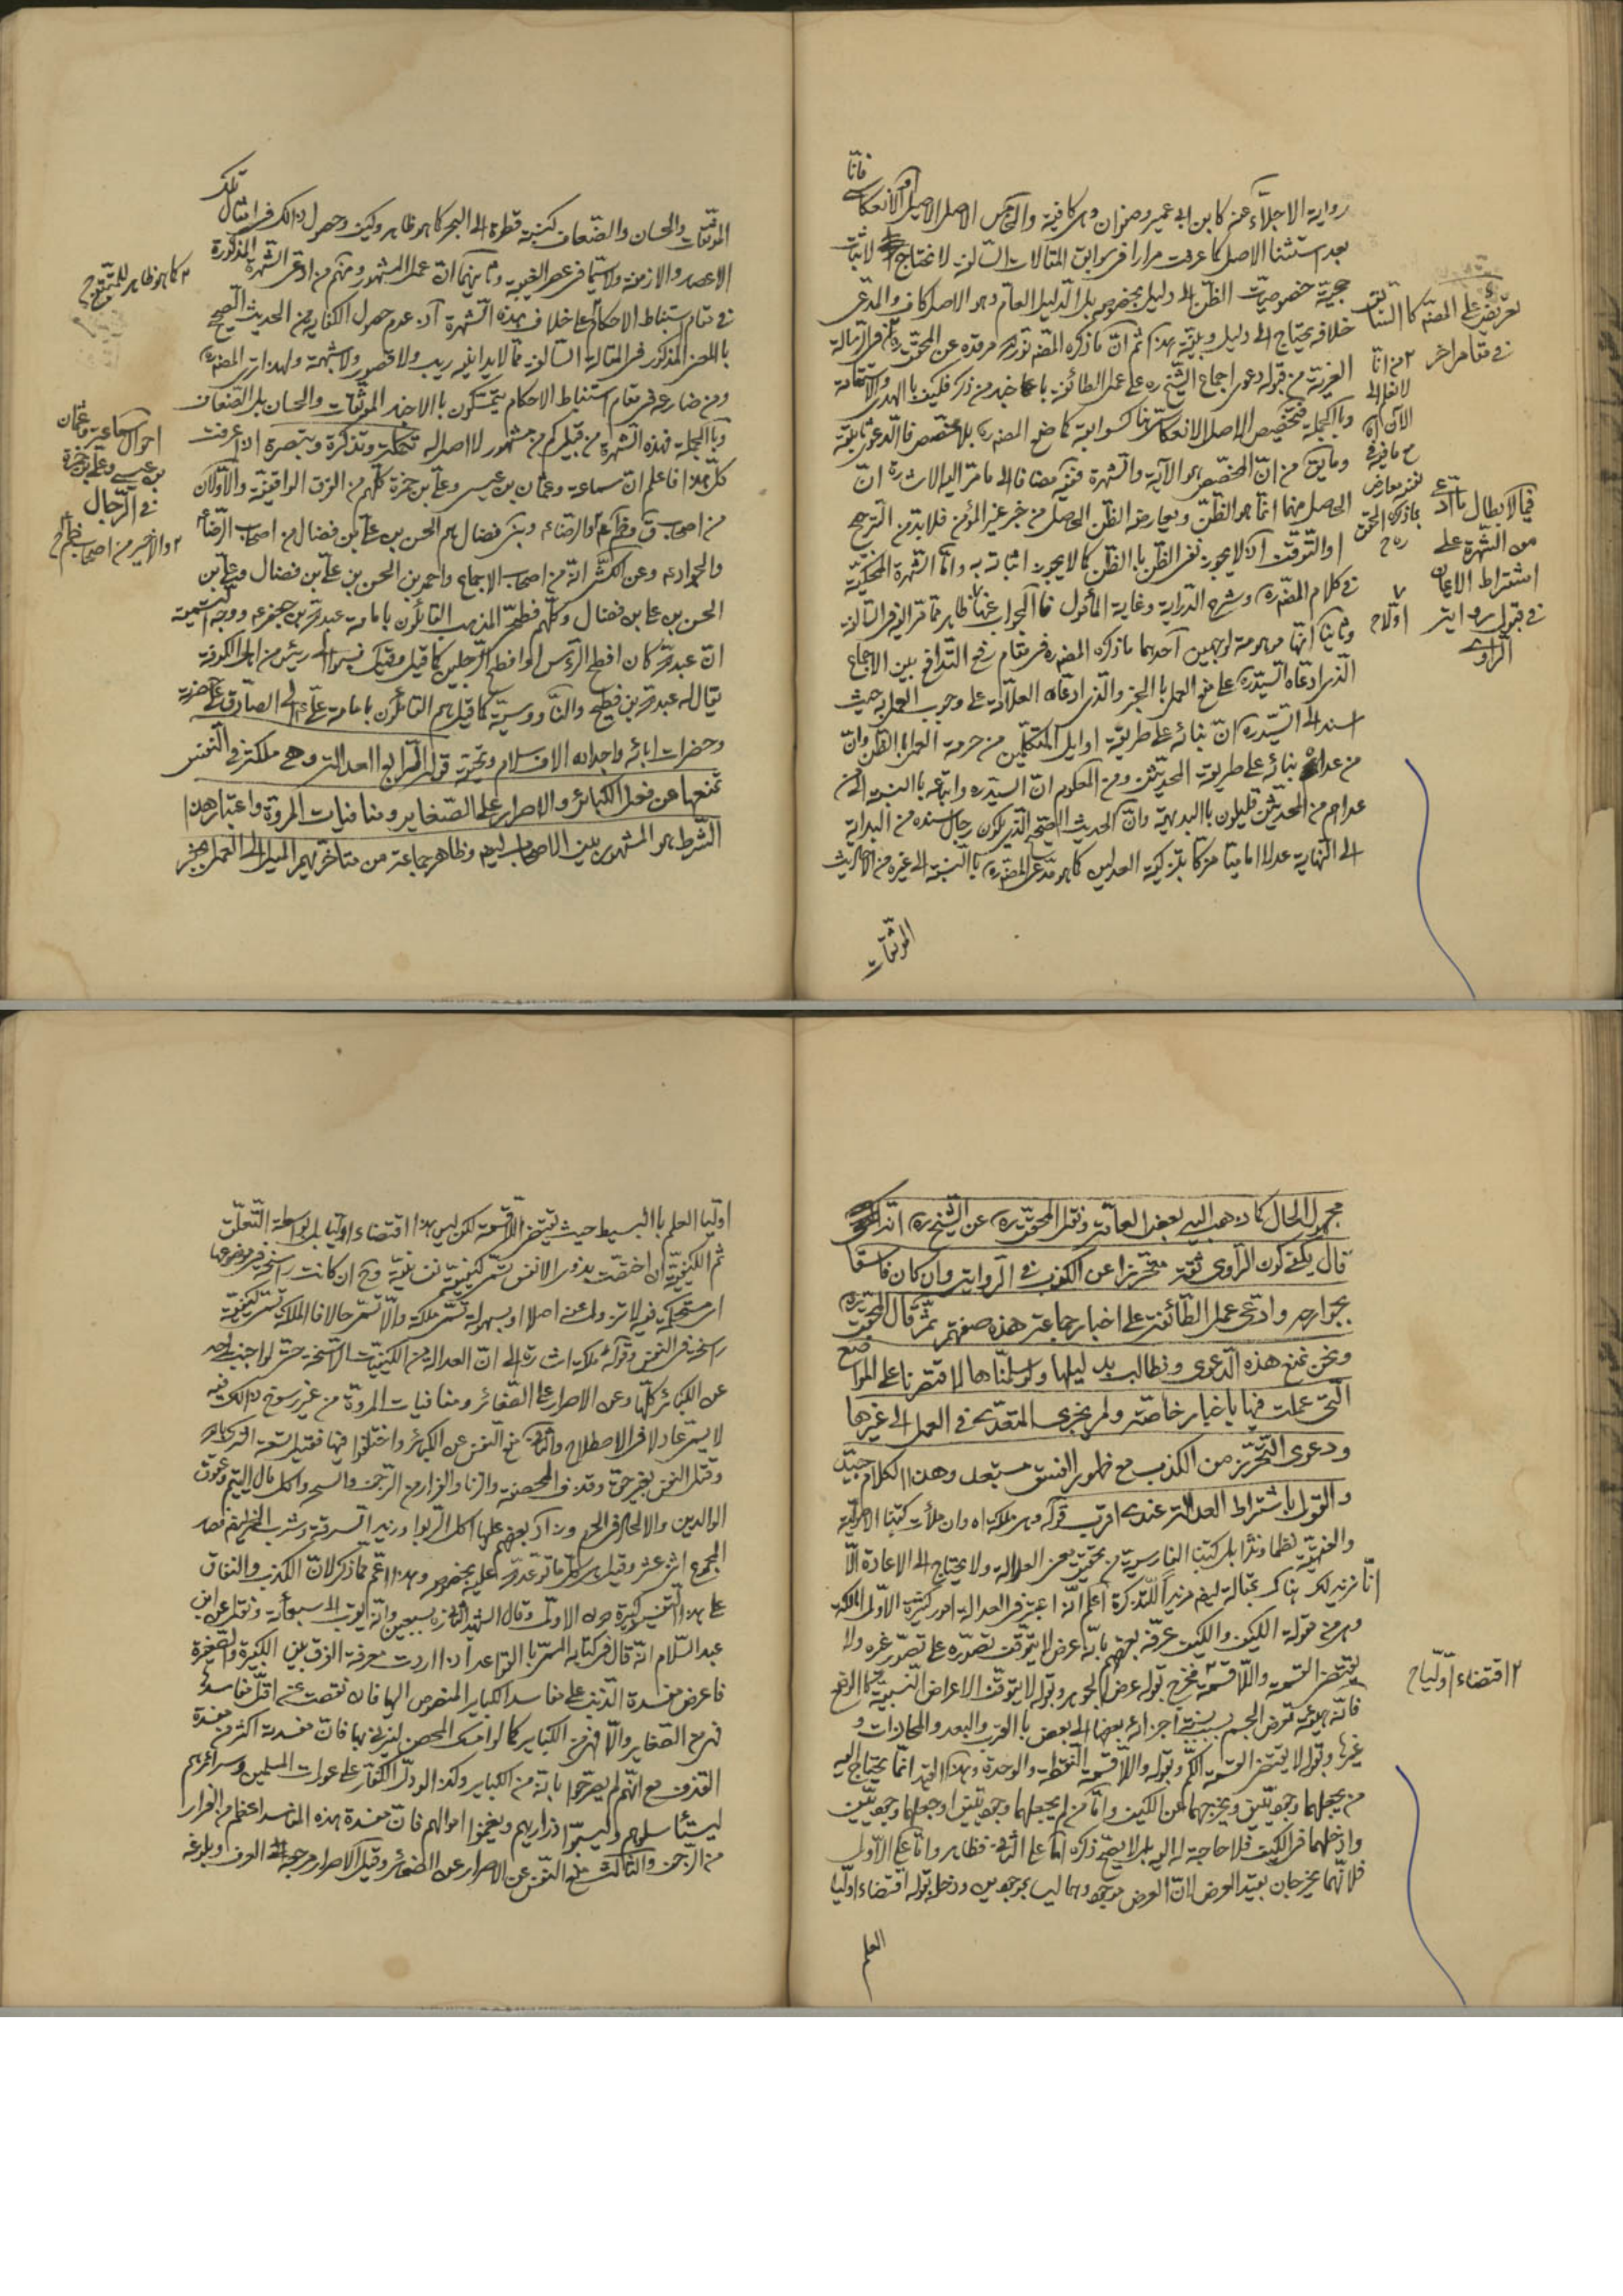 فانّا
رواية الاجلّاء عنه كابن ابى عمير وصفوان وهى كافية والحاصل الاصل الاصيل والانعكاسى
بعد استثنا الاصل كما عرفت مرارا فى سوابق المقالات السّالفة لا نحتاج لاثبات
حجّية خصوصيّات الظنّ الى دليل بخصوصه بل الدّليل العامّ وهو الاصل كاف والمدّعى
خلافه يحتاج الى دليل وبيّنة هذا ثم انّ ما ذكره المصنّف نور مرقده عن المحقق فى الرّسالة
العزيّة من قوله دعوى اجماع الشّيخ ره على عمل الطائفة باخبار
وبالجملة فتخصيص الاصل الانعكاسى كسوابقه كما صنع المصنف ره بلا مخصّص فالدّعوى ثابتة
وما يق من انّ المخصّص هو الآية والشّهرة ففيه مضافا الى ما مرّ اليه الاشارة انّ
الحاصل منهما انّما هو الظنّ ويعارضه الظنّ الحاصل من خبر غير المؤمن فلا بدّ من الترجيح
او التّوقّف اذ لا يجوز نفى الظنّ بالظنّ كما لا يجوز اثباته به وامّا الشّهرة المحكيّة
فى كلام المصنّف ره وشرح الدّراية وغاية المأمول فالجواب عنها ظاهر ممّا قرّر فى السّالفة
وبيّنا انّها موهومة لوجهين احدهما ما ذكره المصنف ره فى مقام رفع التدافع بين الاجماع
الّذى ادّعاه السّيّد ره على منع العمل بالخبر والّذى ادّعاه العلّامة على وجوب العمل به حيث
اسند الى السّيّد ره انّ بنائه على طريقة اوايل المتكلّمين من حرمة العمل بالظنّ وانّ
من عداه بنائه على طريقة المحدّثين ومن المعلوم انّ السيّد ره واتباعه بالنسبة الى من
عداهم من المحدّثين قليلون بالبديهة وانّ الحديث الصّحيح الّذى يكون رجال سنده من البداية
الى النّهاية عدلا اماميّا مزكّا بتزكية العدلين كما هو مدّعى المصنف ره بالنّسبة الى غيره من الاحاديث
الموثقات
تعريض على المصنّف كالسّابق
فى مقام اخر
فيما لابطال ما ادّعى
من الشهرة على
اشتراط الايمان
فى قبول رواية
الراوى
الموثقات والحسان والضّعاف كنسبة قطرة الى البحر كما هو ظاهر وكيف وحصول ذلك فى امثال تلك
الاعصار والازمنة ولا سيّما فى عصر الغيبة وثانيهما انّ عمل المشهور ومنهم من ادّعى الشّهرة المذكورة
فى مقام استنباط الاحكام على خلاف هذه الشّهرة اذ عدم حصول الكفاية من الحديث الصّحيح
بالمعنى المذكور فى المقالة السّالفة ممّا لا يدانيه ريب ولا قصور ولا شبهة ولهذا ترى المصنف ره
ومن ضارعه فى مقام استنباط الاحكام يتمسّكون بالاخبار الموثقات والحسان بل الضّعاف
وبالجملة فهذه الشّهرة من قبيل كم من مشهور لا اصل له تكملة وتذكرة وتبصرة اذا عرفت
كلّ هذا فاعلم انّ سماعة وعثمان بن عيسى وعلىّ بن حمزة كلّهم من الفرق الواقفيّة والاوّلان
من اصحاب ق وظم ع والرّضاء وبنى فضال هم الحسن بن علىّ بن فضال من اصحاب الرّضا ع
والجواد ع وعن الكشّى انّه من اصحاب الاجماع واحمد بن الحسن بن علىّ بن فضال وعلىّ بن
الحسن بن على بن فضال وكلّهم فطحىّ المذهب القائلون بامامة عبد اللّه بن جعفر ع ووجه التسمية
انّ عبد اللّه كان افطح الرّأس او افطح الرّجلين كما قيل وقيل نسبوا الى رئيس من اهل الكوفة
يقال له عبد اللّه بن فطيح والنّاووسيّة كما قيل هم القائلون بامامة علىّ ع الى الصّادق ع
وحضرات ابائه واجداده الاف سلام وتحيّة قوله الرّابع العدالة وهى ملكة فى النّفس
تمنعها عن فعل الكبائر والاصرار على الصّغاير ومنافيات المروّة واعتبار هذا
الشّرط هو المشهور بين الاصحاب وظاهر جماعة من متأخّريهم الميل الى العمل بخبر
كما هو ظاهر للمتتبع
احوال سماعة وعثمان
بن عيسى وعلى بن حمزة
فى الرّجال
والاخير من اصحاب ظم ع
مجهول الحال كما ذهب اليه بعض العامّة ونقل المحقّق ره عن الشّيخ ره انّه
قال يكفى كون الرّاوى ثقة متحرّزا عن الكذب فى الرّواية وان كان فاسقا
بجوارحه وادّعى عمل الطّائفة على اخبار جماعة هذه صفتهم ثمّ قال المحقّق ره
ونحن نمنع هذه الدّعوى ونطالب بدليلها ولو سلّمناها لاقتصرنا على المواضع
الّتى عملت فيها باخبار خاصّة ولم يجز التّعدّى فى العمل الى غيرها
ودعوى التّحرّز من الكذب مع ظهور الفسق مستبعد وهذا الكلام جيّد
والقول باشتراط العدالة عندى اقرب قوله وهى ملكة اه وان ملأت كتبنا الاصوليّة
والفقهيّة نظما ونثرا بل كتبنا الفارسيّة من تحقيق معنى العدالة ولا يحتاج الى الاعادة الّا
انّا نزيد لك هناك مقالة ليفهم مزيدا للتّذكرة اعلم انّه اعتبر فى العدالة امور كثيرة الاوّل الملكة
وهى من مقولة الكيف والكيف عرّفه بعضهم بانّه عرض لا يتوقّف تصوّره على تصوّر غيره ولا
يقتضى القسمة واللّا قسمة فخرج بقوله عرض الجوهر وبقوله لا يتوقّف الاعراض النّسبيّة كالوضع
فانّه هيئة تعرض الجسم بسبب نسبة اجزائه بعضها الى بعض بالقرب والبعد والمحاذات و
غيرها وبقوله لا يقتضى القسمة الكمّ وبقوله واللّا قسمة النّقطة والوحدة وهذا القيد انّما يحتاج اليه
من يجعلهما وجوديّتين ويخرجهما عن الكيف وامّا من لم يجعلهما وجوديّتين او جعلهما وجوديّتين
وادخلهما فى الكيف فلا حاجة له اليه بل لا يصحّ ذكره امّا على الثّانى فظاهر وامّا على الاوّل
فلانّهما يخرجان بقيد العرض لانّ العرض موجود وهما ليسا بموجودين ودخل بقوله اقتضاء اوّليّا
العلم
اقتضاء اوّليّا ح
اوّليّا العلم بالبسيط حيث يقتضى اللّا قسمة لكن ليس هذا اقتضاء اوّليّا بل بواسطة التّعلّق
ثم الكيفيّة ان اختصّت بذوى الانفس تسمّى كيفيّة نفسانيّة وح ان كانت راسخة فى موضوعها
اى مستحكمة فيه لا تزول عنه اصلا او بسهولة تسمّى ملكة والّا تسمّى حالا فالملكة كيفيّة
راسخة فى النّفس وقوله ملكة اشارة الى انّ العدالة من الكيفيّات الرّاسخة حتّى لو اجتنب احد
عن الكبائر كلّها وعن الاصرار على الصّغائر ومنافيات المروّة من غير رسوخ ذلك فيه
لا يسمّى عادلا فى الاصطلاح والثّانى منع النّفس عن الكبائر واختلفوا فيها فقيل تسعة الشّرك باللّه
وقتل النّفس بغير حقّ وقذف المحصنة والزّنا والفرار من الزّحف والسّحر واكل مال اليتيم وعقوق
الوالدين والالحاد فى الحرم وزاد بعضهم عليها اكل الرّبوا وزيد السّرقة وشرب الخمر فيصير
المجموع اثنى عشر وقيل هى كلّ ما توعّد اللّه عليه بخصوصه وهذا اعمّ ممّا ذكر لانّ الكذب والنّفاق
على هذا التّفسير كبيرة دون الاوّل وقال الشّهيد الثّانى ره سبعين وانّه اقرب الى سبعمائة ونقل عن ابن
عبد السّلام انّه قال فى كتابه المسمّى بالقواعد اذا اردت معرفة الفرق بين الكبيرة والصّغيرة
فاعرض مفسدة الذّنب على مفاسد الكبائر المنصوص اليها فان نقصت عن اقلّ مفاسد
فهى من الصّغاير والّا فهى من الكباير كما لو امسك المحصن ليزنى بها فانّ مفسدته اكثر من مفسدة
القذف مع انّهم لم يصرّحوا بانّه من الكباير وكذا لو دلّ الكفّار على عورات المسلمين
ليستأصلوهم ويسبوا ذراريهم ويغنموا اموالهم فانّ مفسدة هذه المفاسد اعظم من الفرار
من الزّحف والثّالث منع النّفس عن الاصرار عن الصّغائر وقيل الاصرار مرجعه الى العرف وبلوغه